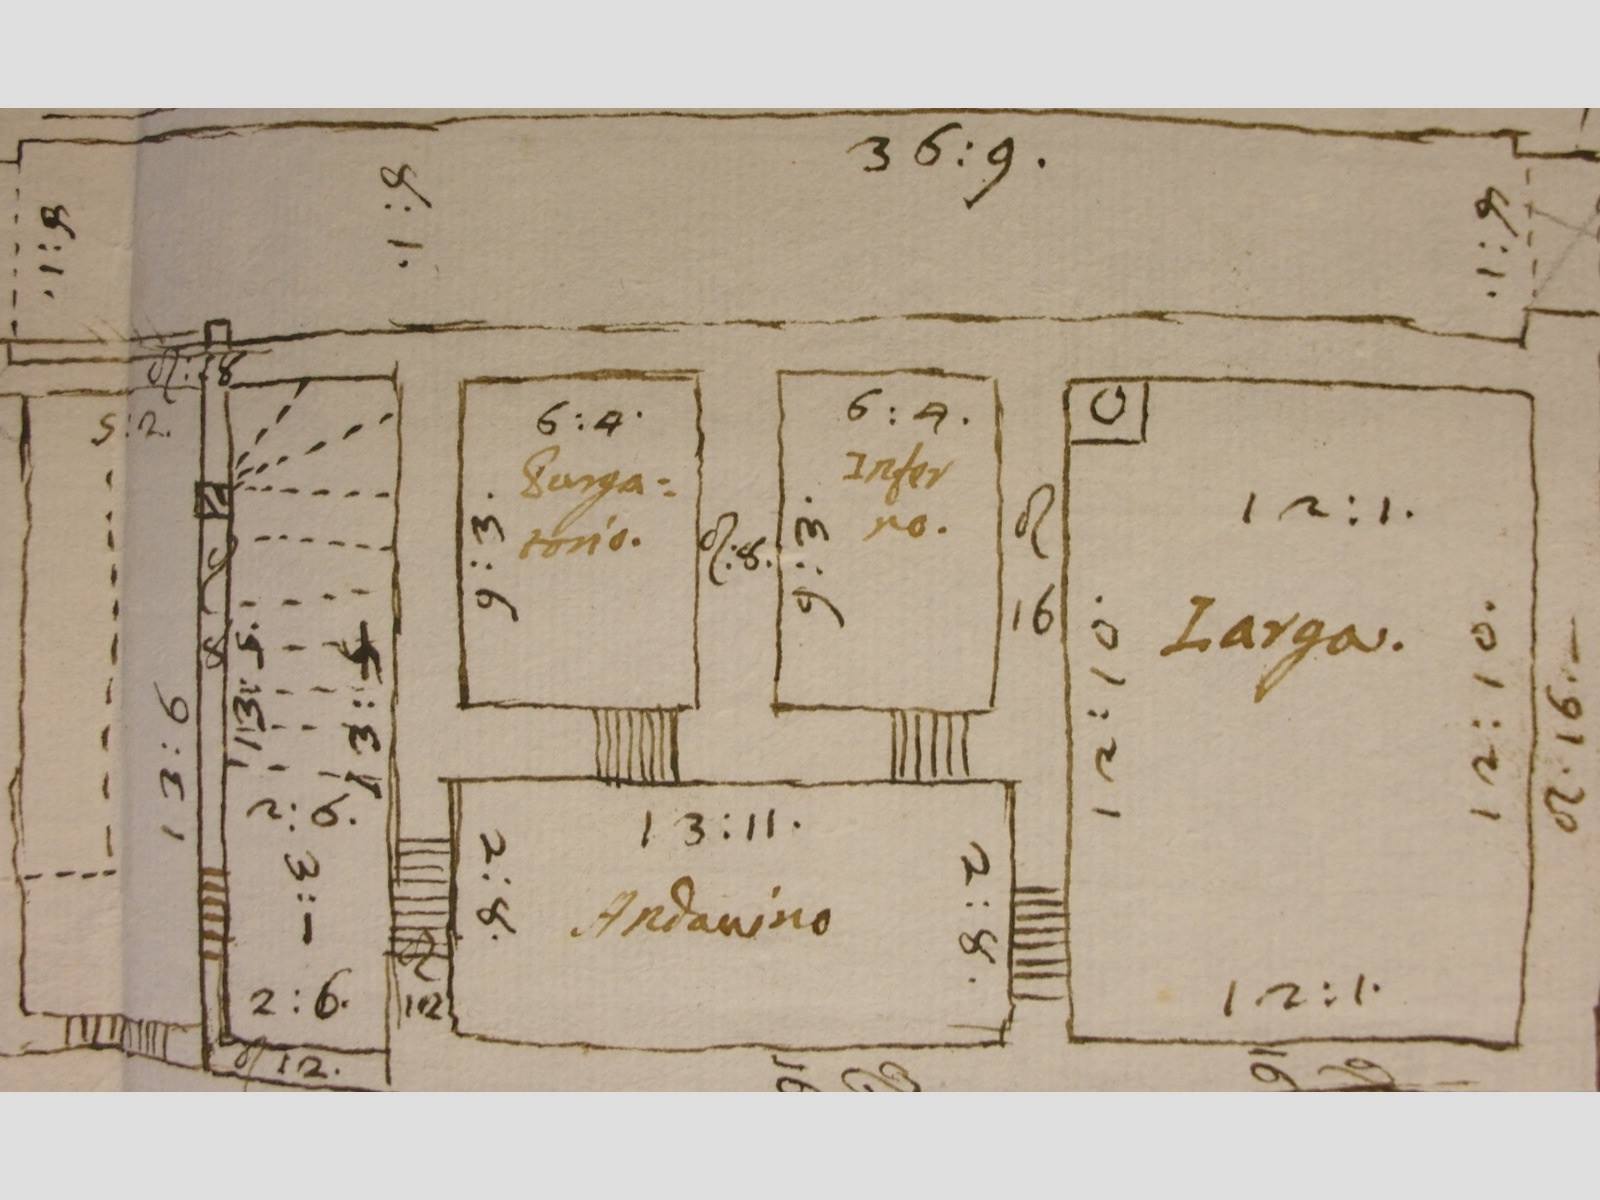 36:9.
.1:8
.1:8
.1:8
5:2.
6:4.
Purga=
torio.
9:3.
:8.
6:4.
Infer
no.
9:3.
16
12:1.
Larga.
12:10.
12:10.
:16.
13:6
13:5.
13:5
2:6.
3:1
2:6.
12.
12
13:11.
Andavino
2:8.
2:8.
12:1.
16
16